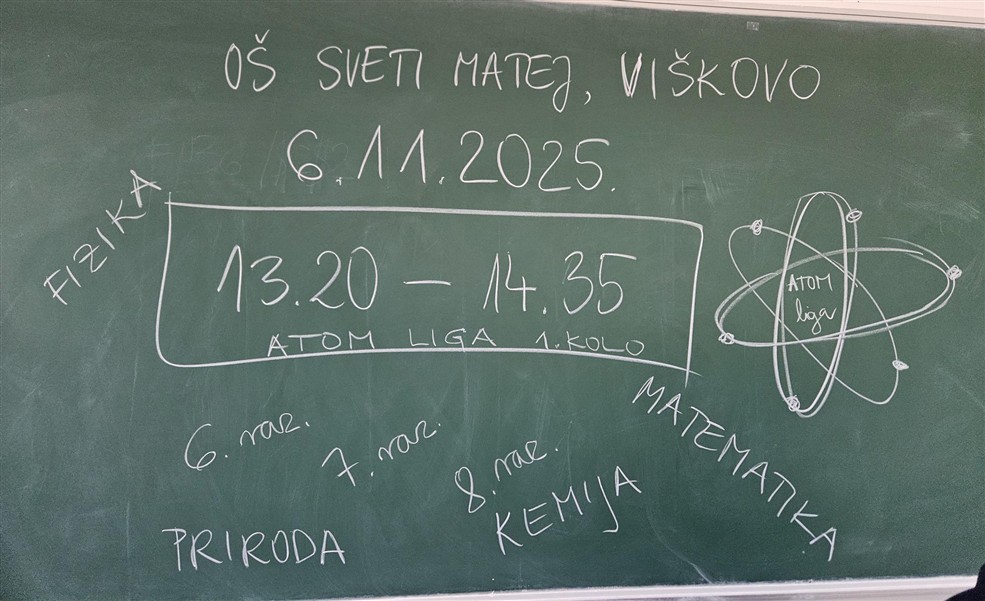 OŠ SVETI MATEJ, VIŠKOVO
6.11.2025.
FIZIKA
13.20 – 14.35
ATOM LIGA 1.KOLO
ATOM
liga
6. raz.
7. raz.
8. raz.
MATEMATIKA
KEMIJA
PRIRODA